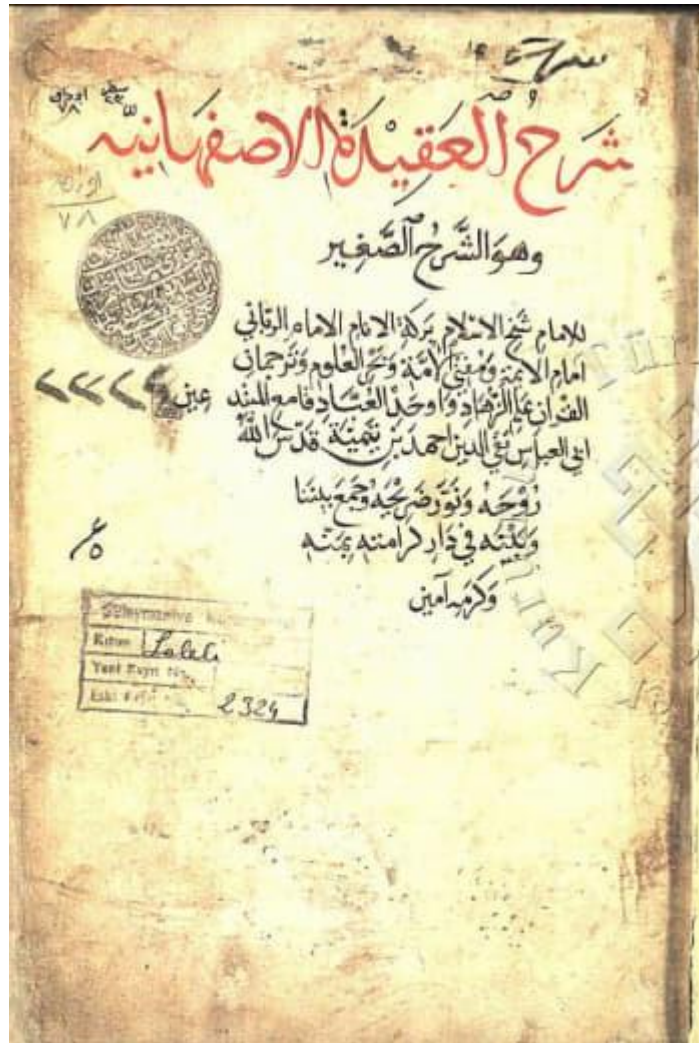 شرح العقيدة الاصفهانيه
وهو الشرح الصغير
للامام شيخ الاسلام بركة الانام الامام الرباني
امام الايمة ومفتي الامة وبحر العلوم وترجمان
القران علم الزهاد واوحد العباد قامع المبتدعين
ابي العباس تقي الدين احمد بن تيمية قدس الله
روحه ونور ضريحه وجمع بيننا
وبينه في دار كرامته بمنه
وكرمه آمين
٧٨
Süleymaniye
Kısmı Laleli
Yeni Kayıt No.
Eski Kayıt 2324